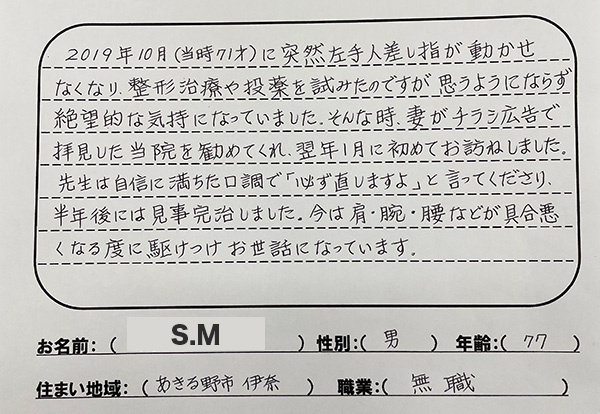 2019年10月(当時71才)に突然左手人差し指が動かせ
なくなり、整形治療や投薬を試みたのですが思うようにならず
絶望的な気持になっていました。そんな時、妻がチラシ広告で
拝見した当院を勧めてくれ、翌年1月に初めてお訪ねしました。
先生は自信に満ちた口調で「必ず直しますよ」と言ってくださり、
半年後には見事完治しました。今は肩・腕・腰などが具合悪
くなる度に駆けつけお世話になっています。
お名前:( S.M ) 性別:( 男 ) 年齢:( 77 )
住まい地域:( あきる野市 伊奈 ) 職業:( 無職 )